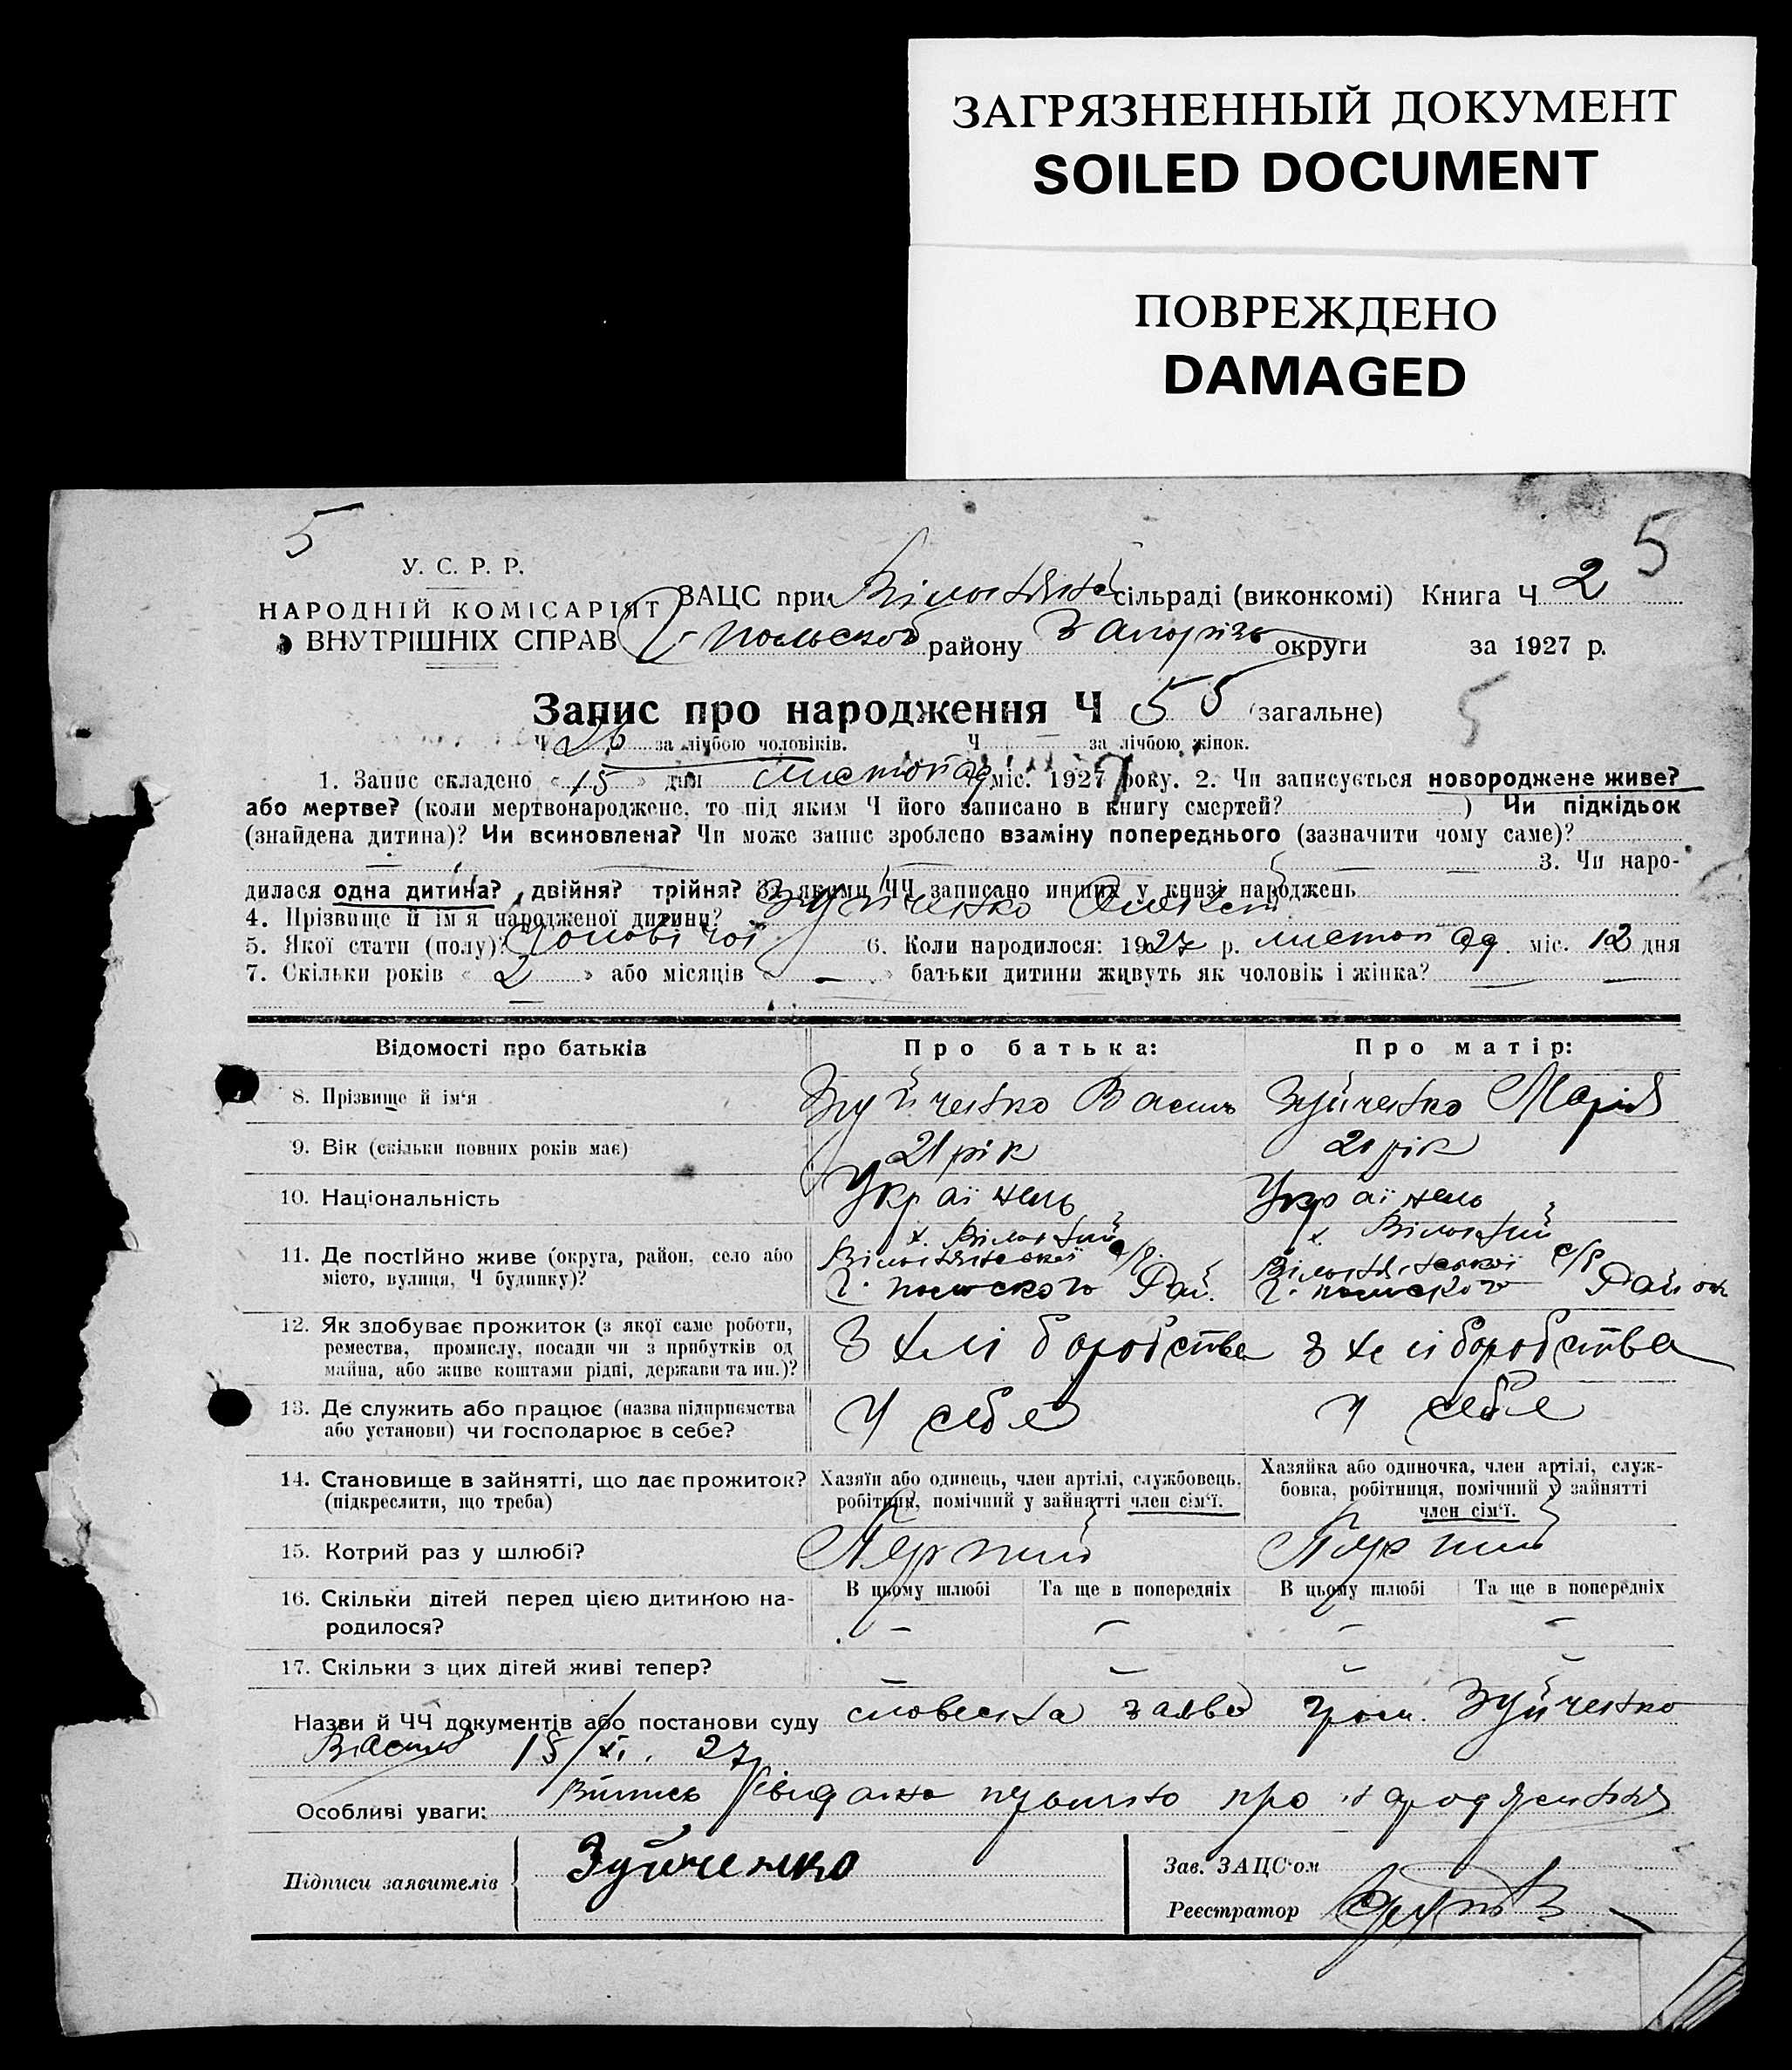 ЗАГРЯЗНЕННЫЙ ДОКУМЕНТ
SOILED DOCUMENT
ПОВРЕЖДЕНО
DAMAGED
5
5
У. С. Р. Р.
НАРОДНІЙ КОМІСАРІЯТ
ВНУТРІШНІХ СПРАВ
ЗАЦС при сільраді (виконкомі) Книга Ч 2
Г-польсков району Запоріз округи за 1927 р.
Запис про народження Ч 55 (загальне)
5
Ч 26 за лічбою чоловіків. Ч — за лічбою жінок.
1. Запис складено « 15 » дня листопад міс. 1927 року. 2. Чи записується новороджене живе?
або мертве? (коли мертвонароджене, то під яким Ч його записано в книгу смертей? ) Чи підкідьок
(знайдена дитина)? Чи всиновлена? Чи може запис зроблено взаміну попереднього (зазначити чому саме)?
— — — 3. Чи наро-
дилася одна дитина? двійня? трійня? За якими ЧЧ записано инших у книзі народжень
4. Прізвище й ім'я народженої дитини? Зуйченко Олексій
5. Якої стати (полу)? Чоловічої 6. Коли народилося: 1927 р. листопад. міс. 12 дня
7. Скільки років « 2 » або місяців « — » батьки дитини живуть як чоловік і жінка? — —
Відомості про батьків Про батька: Про матір:
8. Прізвище й ім'я Зуйченко Василь Зуйченко Марія
9. Вік (скільки повних років має) 21 рік 21 рік
10. Національність Українець Українець
11. Де постійно живе (округа, район, село або
місто, вулиця, Ч будинку)?
х. Вільний х. Вільний
с/р. с/р
Г. польского Рай. Г. польского Район
12. Як здобуває прожиток (з якої саме роботи,
ремества, промислу, посади чи з прибутків од
майна, або живе коштами рідні, держави та ин.)?
З хліборобства З хліборобства
13. Де служить або працює (назва підприємства
або установи) чи господарює в себе?
У себе У себе
14. Становище в зайнятті, що дає прожиток?
(підкреслити, що треба)
Хазяїн або одинець, член артілі, службовець,
робітник, помічний у зайнятті член сім'ї.
Хазяйка або одиночка, член артілі, служ-
бовка, робітниця, помічний у зайнятті
член сім'ї.
15. Котрий раз у шлюбі? Перший Перший
16. Скільки дітей перед цією дитиною на-
родилося?
В цьому шлюбі Та ще в попередніх В цьому шлюбі Та ще в попередніх
— — — —
17. Скільки з цих дітей живі тепер? — — — —
Назви й ЧЧ документів або постанови суду словесна заява гром. Зуйченко
Василя 15/XI. 27
Особливі уваги: Випись про народження
Підписи заявителів Зуйченко
Зав. ЗАЦС'ом
Реєстратор